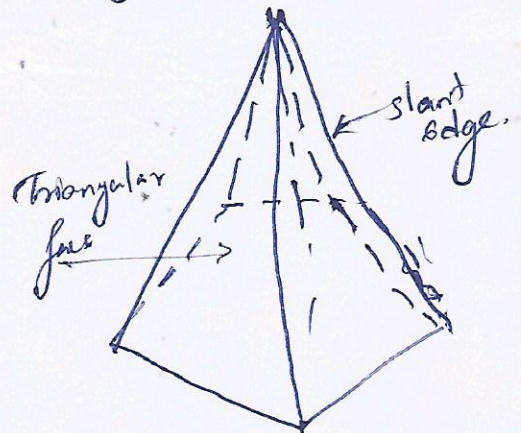 slant
edge.
Triangular
face